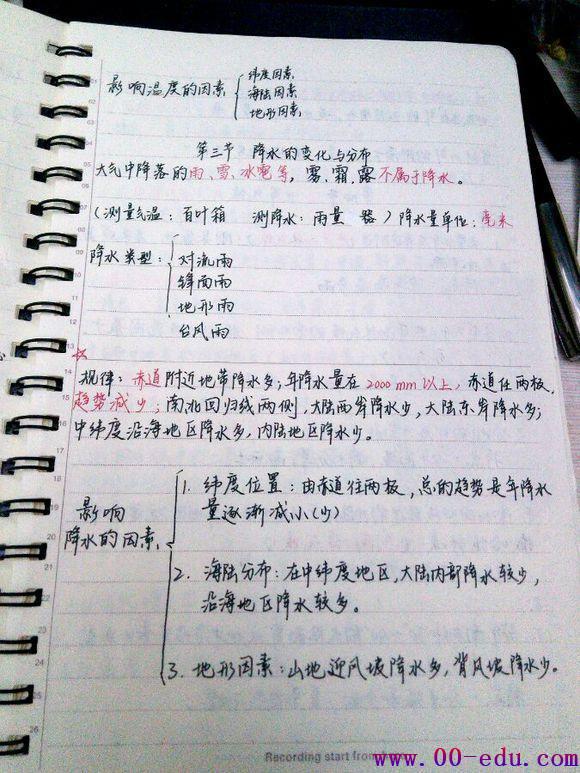 影响温度的因素
纬度因素
海陆因素
地形因素
第三节 降水的变化与分布
大气中降落的雨、雪、冰雹等, 雾、霜、露不属于降水。
(测量气温:百叶箱 测降水:雨量 器)降水量单位:毫米
降水类型:
对流雨
锋面雨
地形雨
台风雨
规律:赤道附近地带降水多;年降水量在2000mm以上,赤道往两极,
趋势减少;南北回归线两侧,大陆西岸降水少,大陆东岸降水多;
中纬度沿海地区降水多,内陆地区降水少。
影响
降水的因素
1. 纬度位置:由赤道往两极,总的趋势是年降水
量逐渐减小(少)
2. 海陆分布:在中纬度地区,大陆内部降水较少,
沿海地区降水较多。
3. 地形因素:山地迎风坡降水多,背风坡降水少。
Recording start from
www.00-edu.com